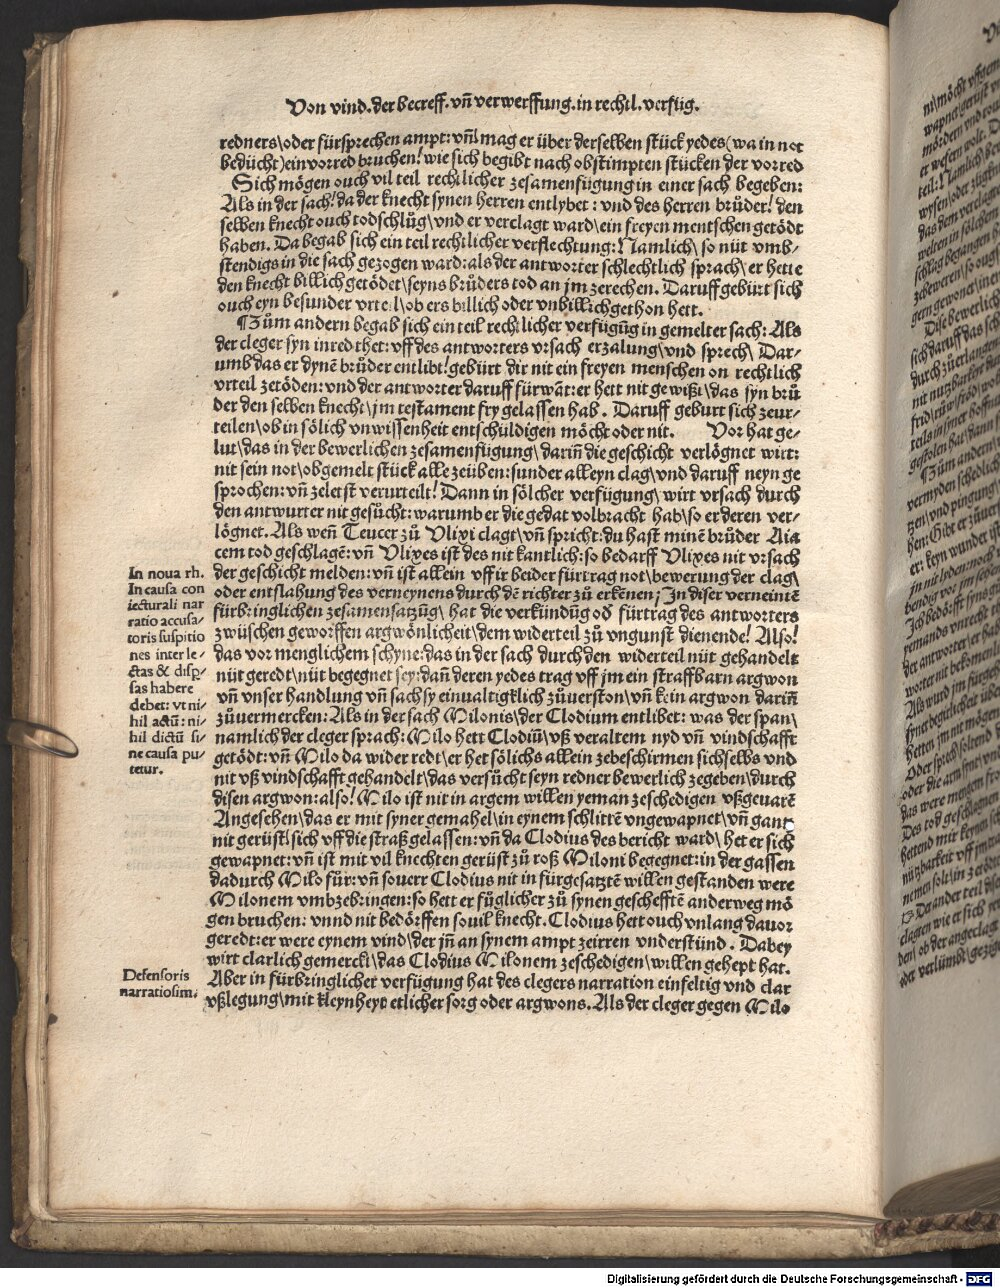 Von vind. der becreff. vñ verwerffung. in rechtl. verfüg.
redners\oder fürsprechen ampt: vñ mag er über derselben stück yedes (wa in not
bedücht) ein vorred bruchen! wie sich begibt nach obstimpten stücken der vorred
Sich mögen ouch vil teil rechtlicher zesamenfügung in einer sach begeben:
Als in der sach! da der knecht synen herren entlybet: vnd des herren brůder! den
selben knecht ouch todschlůg\vnd er verclagt ward\ein freyen mentschen getödt
haben. Da begab sich ein teil rechtlicher verflechtung: Namlich\ so nüt vmb⸗
stendigs in die sach gezogen ward: als der antworter schlechtlich sprach\ er hette
den knecht billich getödet\ seyns brůders tod an jm zerechen. Daruff gebürt sich
ouch eyn besunder vrteil\ ob ers billich oder vnbillich gethon hett.
¶Zům andern begab sich ein teil rechtlicher verfügũg in gemelter sach: Als
der cleger syn inred thet: vff des antworters vrsach erzalung\ vnd sprech\ Dar⸗
umb das er dynẽ brůder entlibt! gebürt dir nit ein freyen menschen on rechtlich
vrteil zetöden: vnd der antworter daruff fürwãt: er hett nit gewißt\ das syn brů
der den selben knecht\ jm testament fry gelassen hab. Daruff geburt sich zeur⸗
teilen\ ob in sölich vnwissenheit entschuldigen möcht oder nit. Vor hat ge⸗
lut\ das in der bewerlichen zesamenfügung\ dariñ die geschicht verlögnet wirt:
nit sein not\ obgemelt stück alle zeüben: sunder alleyn clag\ vnd daruff neyn ge
sprochen: vñ zeletst verurteilt! Dann in sölcher verfügung\ wirt vrsach durch
den antwurter nit gesůcht: warumb er die gedat volbracht hab\ so er deren ver⸗
lögnet. Als weñ Teucer zů Vlixi clagt\ vñ spricht: du hast minẽ brůder Aia
cem tod geschlagẽ: vñ Vlixes ist des nit kantlich: so bedarff Vlixes nit vrsach
der geschicht melden: vñ ist allein vff ir beider fürtrag not\ bewerung der clag\
oder entslahung des verneynens durch dẽ richter zů erkẽnen; In diser verneintẽ
fürbringlichen zesamensatzũg\ hat die verkündũg oď fürtrag des antworters
zwüschen geworffen argwönlicheit\ dem widerteil zů vngunst dienende! Also!
das vor menglichem schyne: das in der sach durch den widerteil nüt gehandelt
nüt geredt\ nüt begegnet sey: dañ deren yedes trag vff jm ein straffbarn argwon
vñ vnser handlung vñ sach sy einualtigklich zůuerston\ vñ kein argwon dariñ
zůuermercken: Als in der sach Milonis\ der Clodium entlibet: was der span\
namlich der cleger sprach: Milo hett Clodiũ\ vß veraltem nyd vñ vindschafft
getödt: vñ Milo da wider redt\ er het sölichs allein zebeschirmen sich selbs vnd
nit vß vindschafft gehandelt\ das versůcht seyn redner bewerlich zegeben\ durch
disen argwon: also! Milo ist nit in argem willen yeman zeschedigen vßgeuarẽ
Angesehen\ das er mit syner gemahel\ in eynem schlittẽ vngewapnet\ vñ gantz
nit gerüst\ sich vff die straß gelassen: vñ da Clodius des bericht ward\ het er sich
gewapnet: vñ ist mit vil knechten gerüst zů roß Miloni begegnet: in der gassen
dadurch Milo für: vñ souerr Clodius nit in fürgesatztẽ willen gestanden were
Milonem vmbzebringen: so hett er füglicher zů synen geschefftẽ anderweg mö
gen bruchen: vnnd nit bedörffen souil knecht. Clodius hett ouch vnlang dauor
geredt: er were eynem vind\ der jñ an synem ampt zeirren vnderstünd. Dabey
wirt clarlich gemerckt\ das Clodius Milonem zeschedigen\ willen gehept hat.
Aber in fürbringlicher verfügung hat des clegers narration einfeltig vnd clar
vßlegung\ mit kleynheyt etlicher sorg oder argwons. Als der cleger gegen Milo
In noua rh.
In causa con
iecturali nar
ratio accusa⸗
toris suspitio
nes interie⸗
ctas & disp⸗
sas habere
debet: vt ni⸗
hil actũ: ni⸗
hil dictũ si⸗
ne causa pu⸗
tetur.
Defensoris
narratio sim.
Digitalisierung gefördert durch die Deutsche Forschungsgemeinschaft - DFG